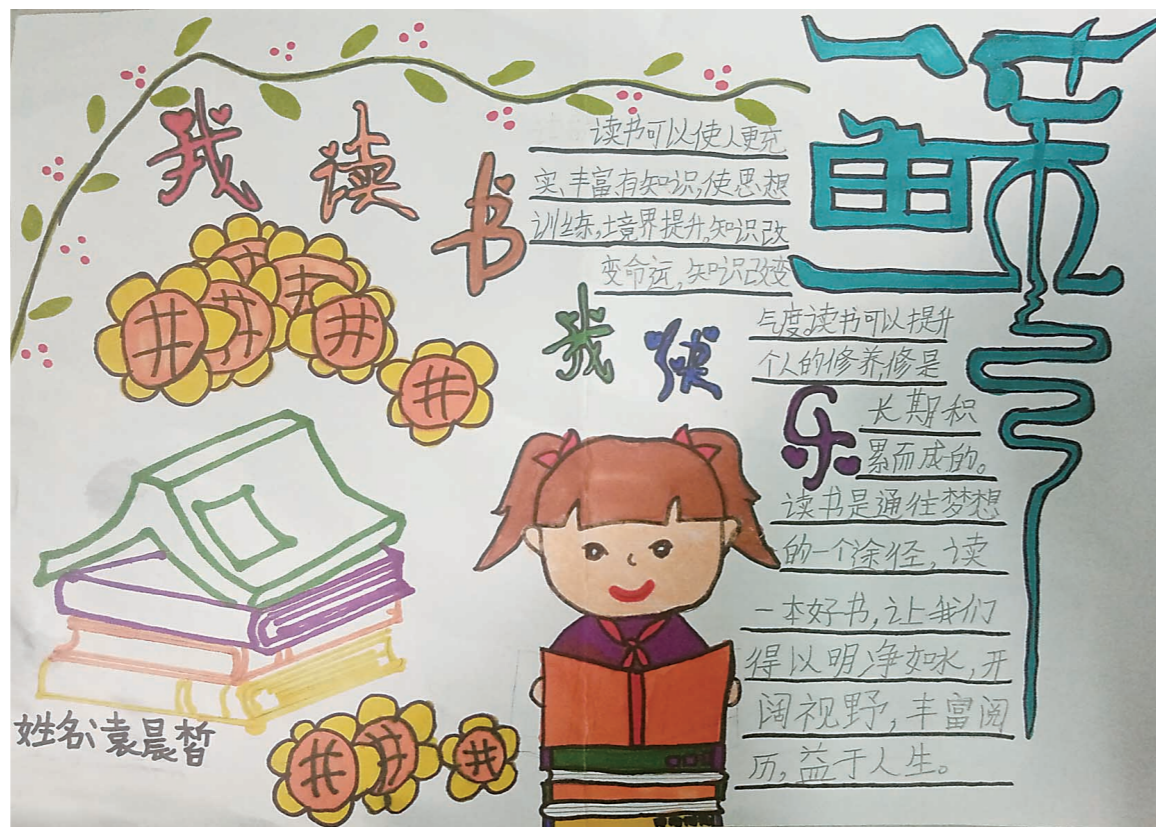 我读书
我快乐
读书可以使人更充
实、丰富有知识,使思想
训练,境界提升,知识改
变命运,知识改变
气度读书可以提升
个人的修养,修是
长期积
累而成的。
读书是通往梦想
的一个途径,读
一本好书,让我们
得以明净如水,开
阔视野,丰富阅
历,益于人生。
姓名:袁晨皙